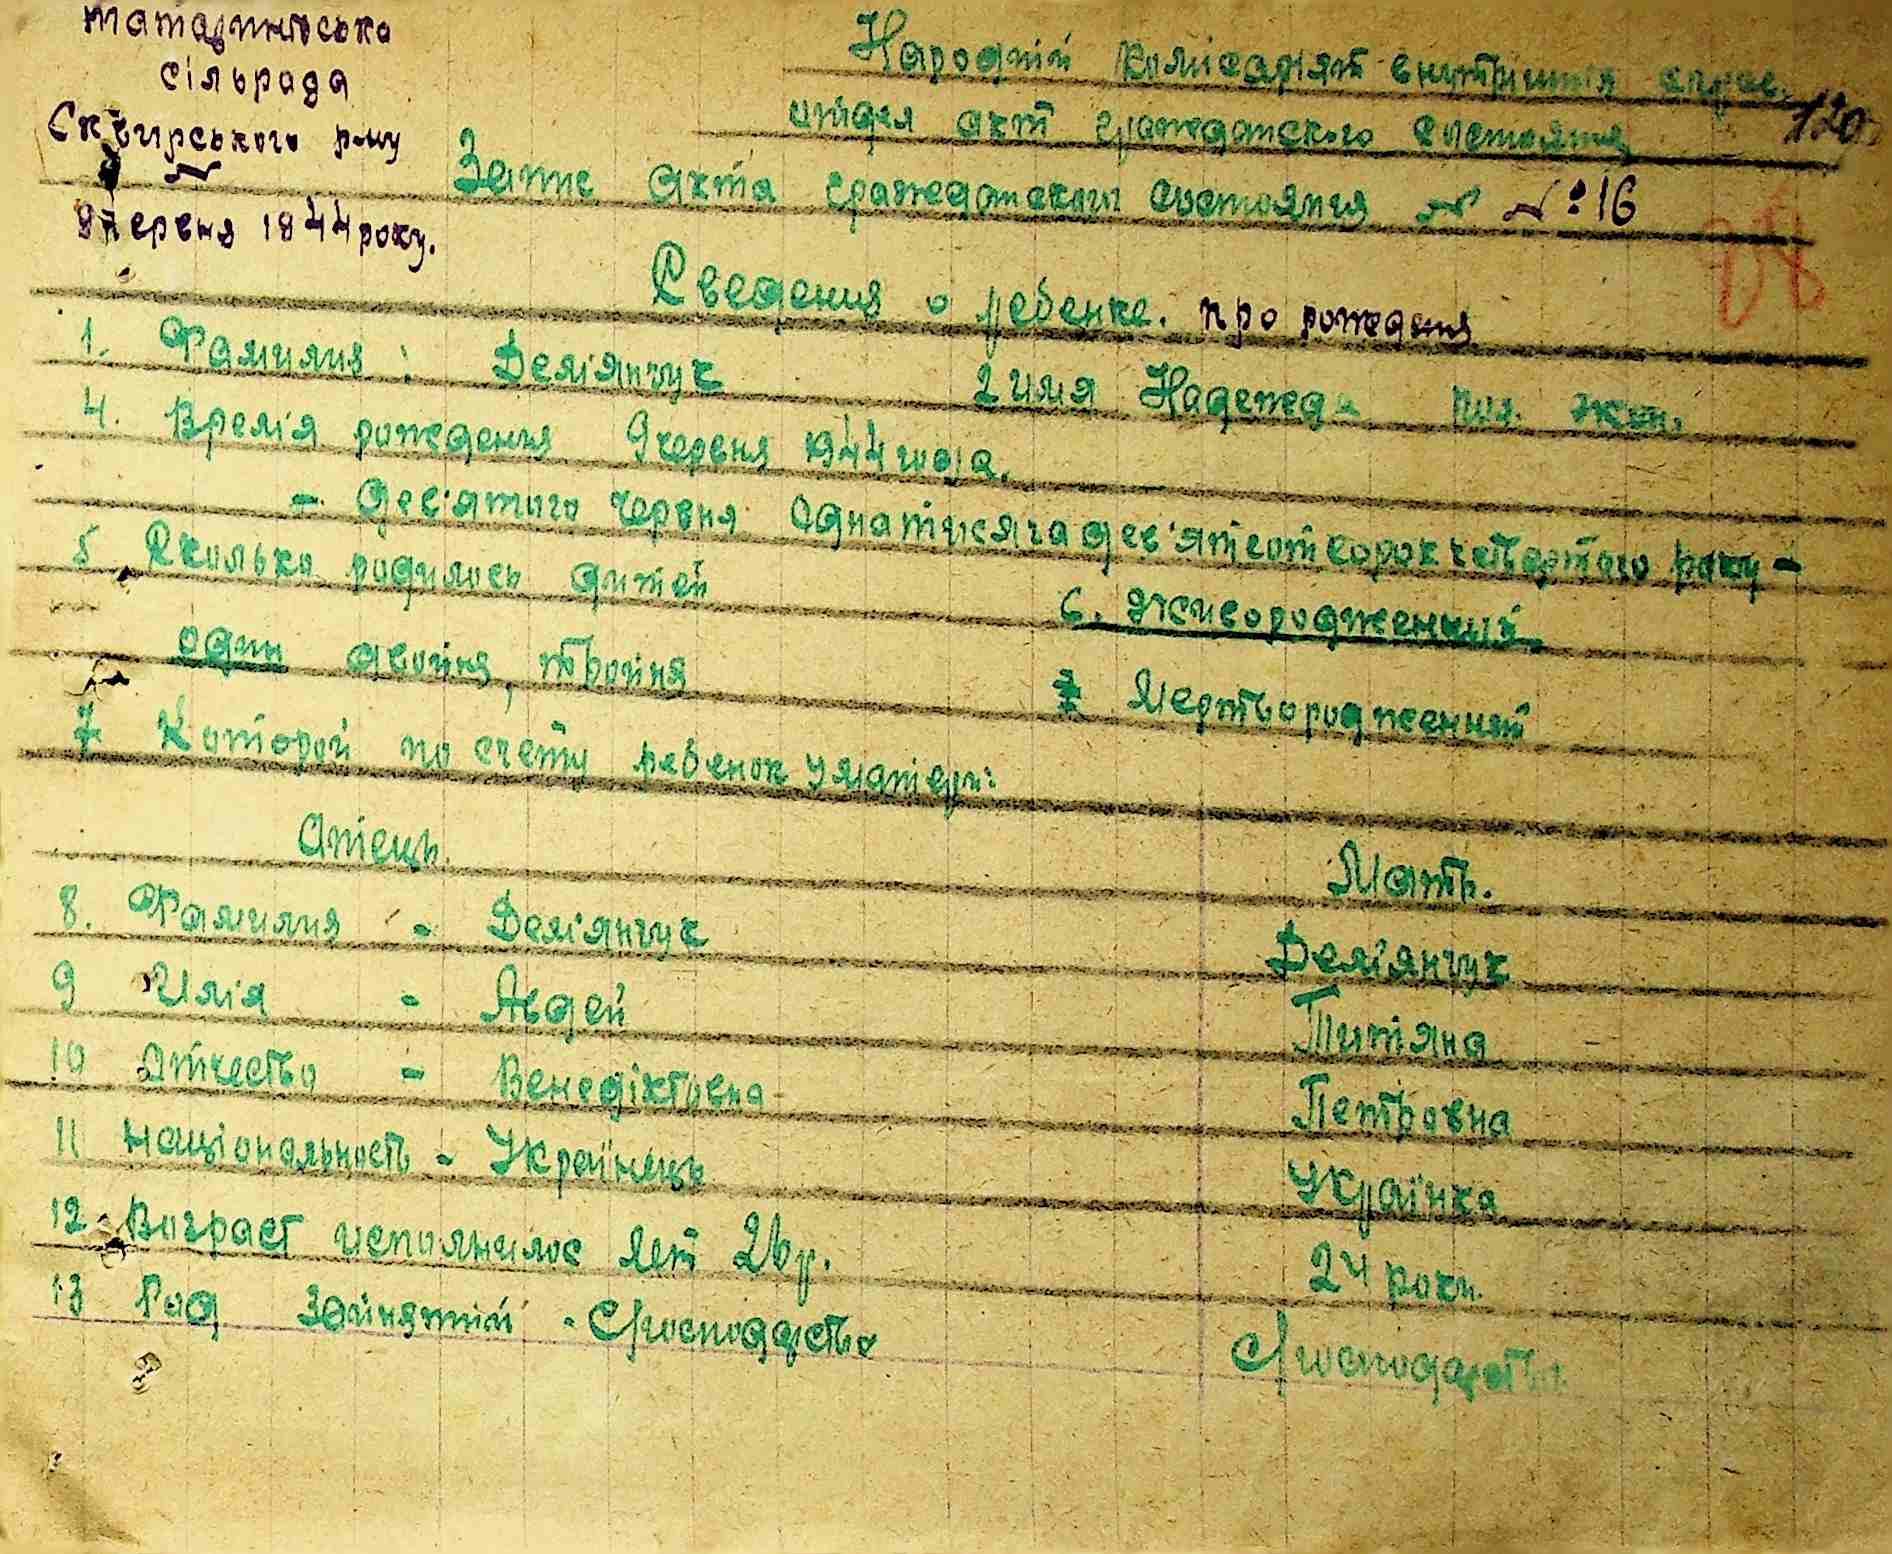 Татаринівська
сільрада
Сквирського р-ну
9 червня 1944 року.
Народній комісаріят внутришнія справ.
отдел акт гражданского состояния
120
Запис акта гражданского состояния № 16
Сведения о ребенке. про рождения
1. Фамилия: Демі'янчук 2 имя Надежда пол. жен.
4. Времія рождения 9 червня 1944 года.
- Дев'ятого Червня Однатисяча дев'ятсот сорок четвертого року -
5 Сколько родилось дитей
6. живородженный
один двойня, тройня
7 Мертвородженный
7 Которой по счету ребенок у матери:
Отець. Мать.
8. Фамилия - Демі'янчук Демі'янчук
9 Имія - Авдей Титяна
10 Отчество - Венедіктовна Петровна
11 Національность - Українець Українка
12 Возраст исполнилос лет 26 р. 24 роки.
13 Род Зайнятій - С/господарство С/господарство